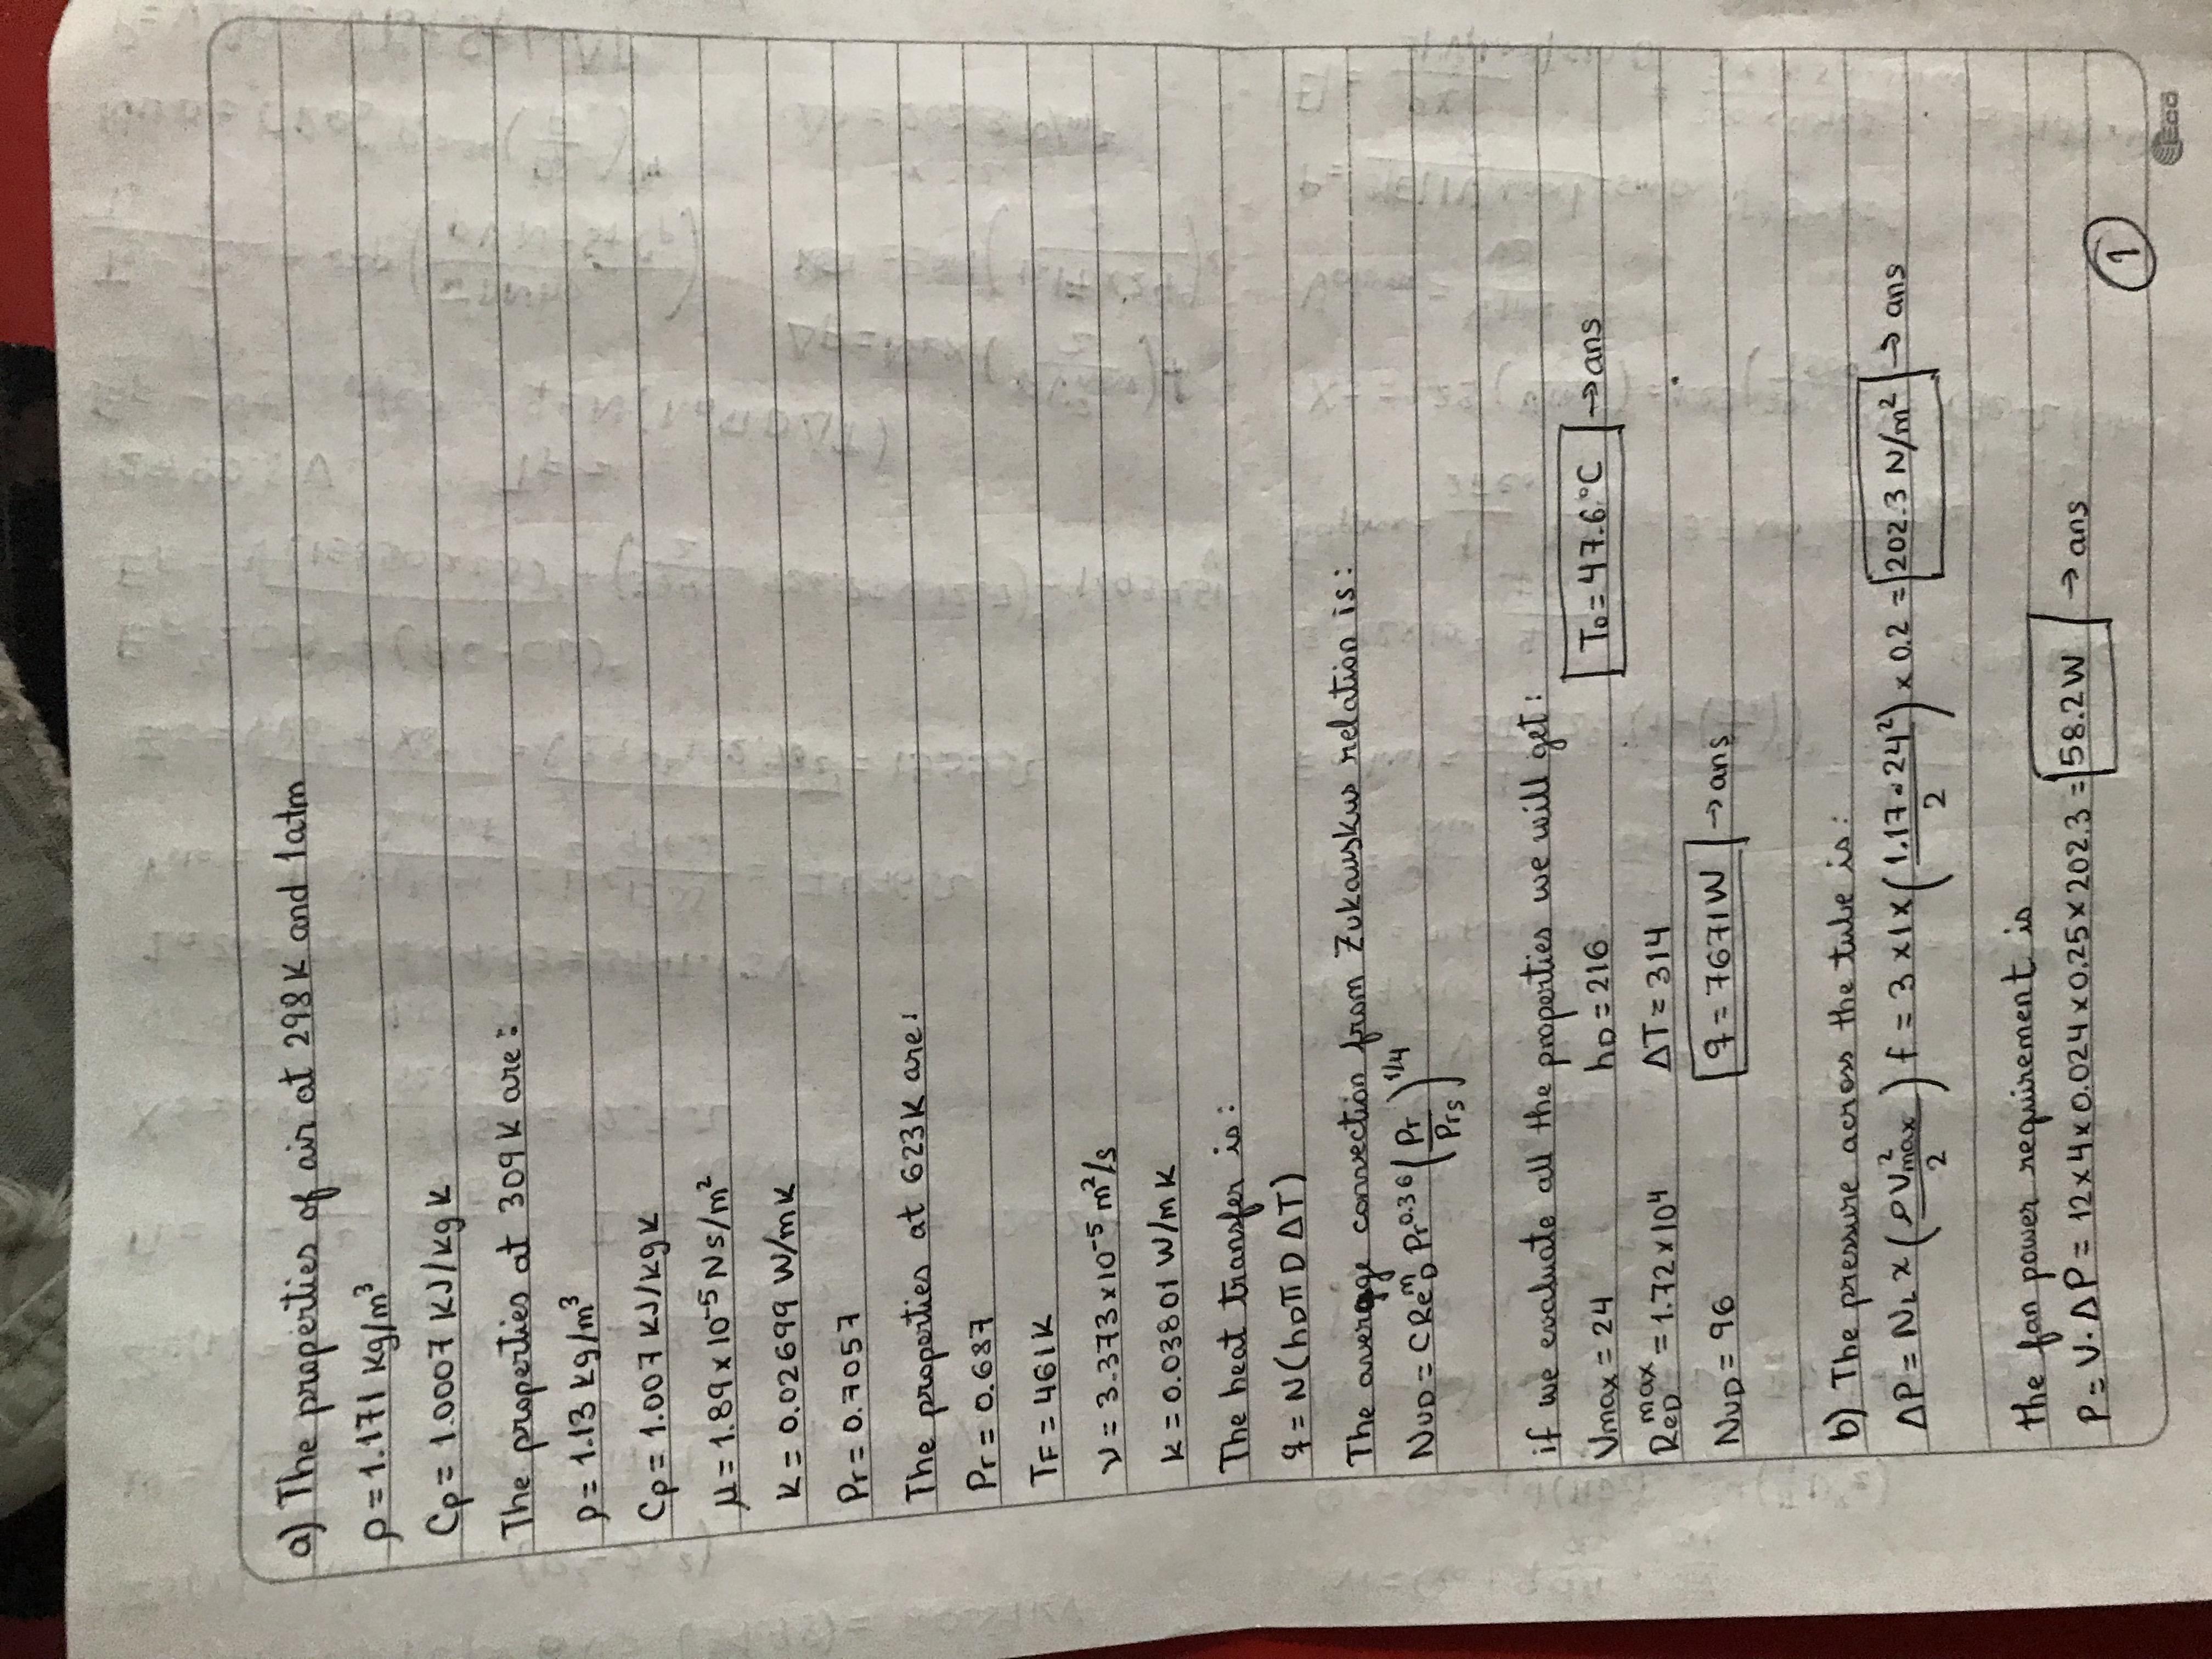 a) The properties of air at 298K and 1atm
ρ = 1.171 kg/m³
Cp = 1.0007 KJ/kg K
The properties at 309K are:
ρ = 1.13 kg/m³
Cp = 1.007 KJ/kg K
μ = 1.89 x 10⁻⁵ Ns/m²
K = 0.02699 W/mK
Pr = 0.7057
The properties at 623K are:
Pr = 0.687
TF = 461K
ν = 3.373x10⁻⁵ m²/s
K = 0.03801 W/mK
The heat transfer is:
q = N(hD π D ΔT)
The average convection from Zukauskus relation is:
NuD = C Re_D^m Pr^0.36 (Pr/Prs)^1/4
if we evaluate all the properties we will get:
Vmax = 24 hD = 216 To = 47.6°C → ans
ReD max = 1.72 x 10⁴ ΔT = 314
NuD = 96 q = 7671W → ans
b) The pressure across the tube is:
ΔP = NL x (ρV²max / 2) f = 3 x 1 x (1.17 x 24² / 2) x 0.2 = 202.3 N/m² → ans
the fan power requirement is
P = V. ΔP = 12 x 4 x 0.024 x 0.25 x 202.3 = 58.2W → ans
1
Eco